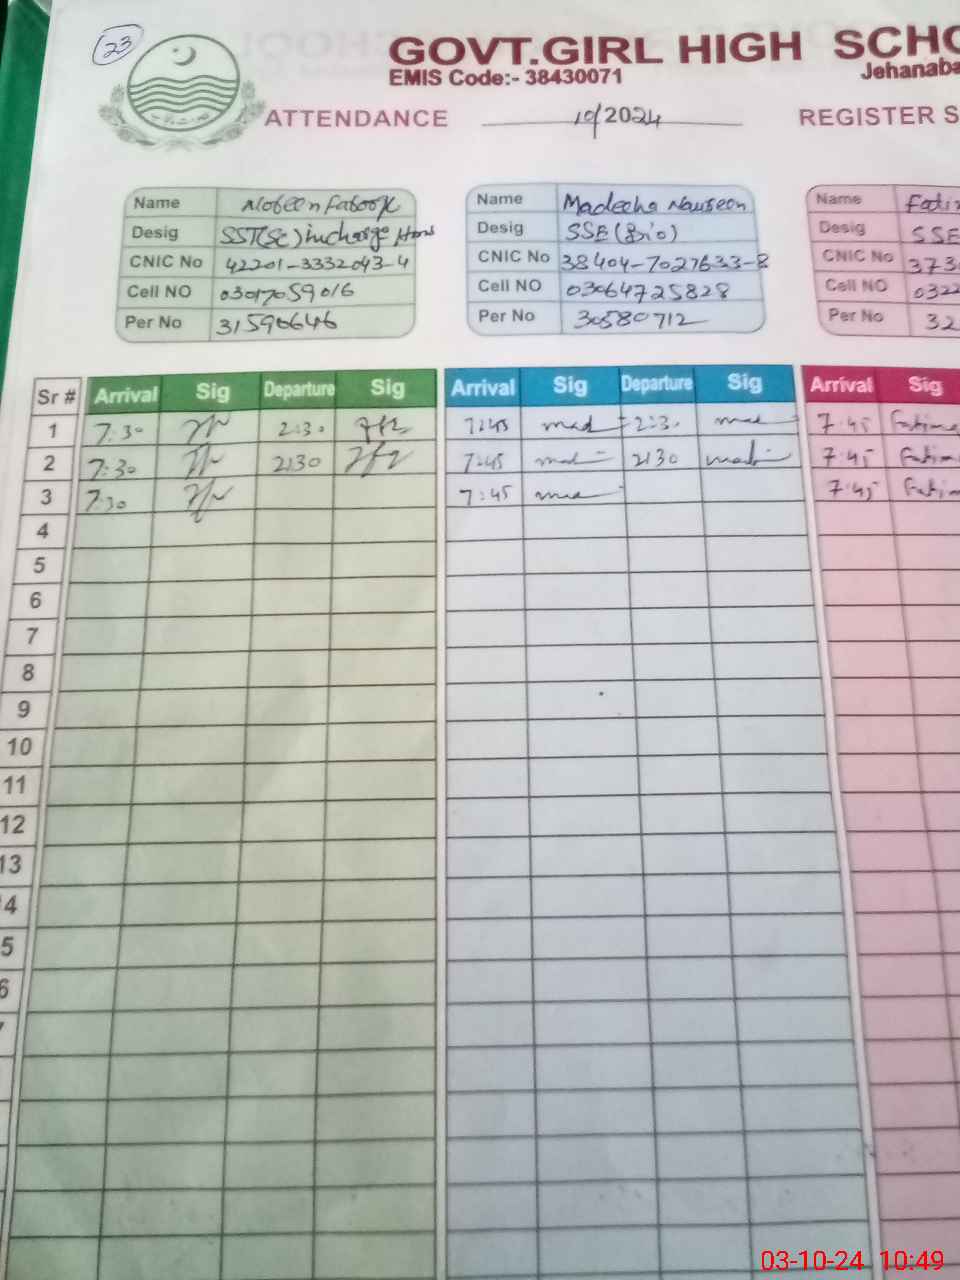 23
GOVT.GIRL HIGH SCHO
EMIS Code:- 38430071
Jehanaba
ATTENDANCE 10/2024 REGISTER S
Name Nobeen Farooq
Desig SST(Sc) incharge Hm
CNIC No 42201-3332043-4
Cell NO 03017059016
Per No 31590646
Name Madeeha Nawreen
Desig SSE (Bio)
CNIC No 38404-7027633-8
Cell NO 03064725828
Per No 30580712
Name Fati
Desig SSE
CNIC No 373
Cell NO 0322
Per No 32
Sr # Arrival Sig Departure Sig Arrival Sig Departure Sig Arrival Sig
1 7:30 2:30 7:45 mad 2:30 mad 7:45 Fatima
2 7:30 2:30 7:45 mad 2:30 madi 7:45 Fatim
3 7:30 7:45 mad 7:45 Fatim
4
5
6
7
8
9
10
11
12
13
4
5
6
03-10-24 10:49